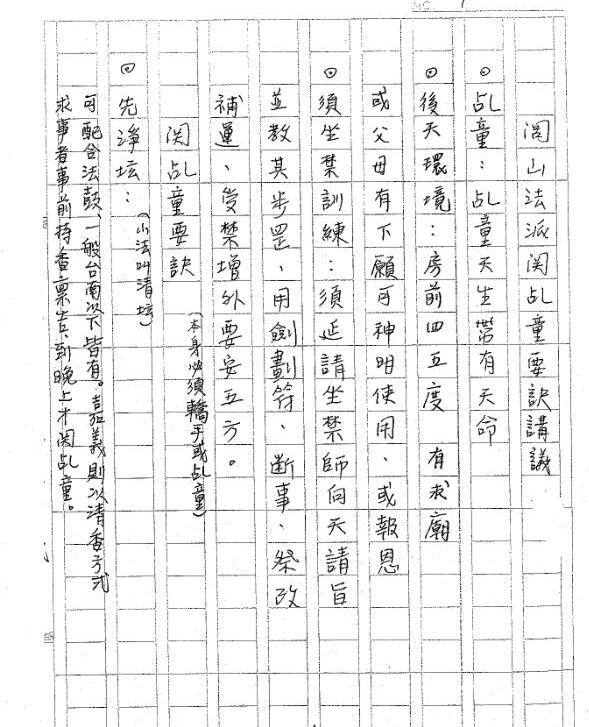 NO. 1
閭山法派関乩童要訣講議
◎乩童:乩童天生帶有天命
◎後天環境:房前四五度 有求廟
或父母有下願可神明使用、或報恩
◎須坐禁訓練:須延請坐禁師向天請旨
並教其步罡、用劍劃符、斷事、祭改
補運、受禁增外要安五方。
関乩童要訣
(本身必須轎手或乩童)
◎先淨坛:
(小法叫清坛)
可配合法鼓、一般台南以下皆有。嘉義則以清香方式
求事者事前持香禀告、到晚上才関乩童。